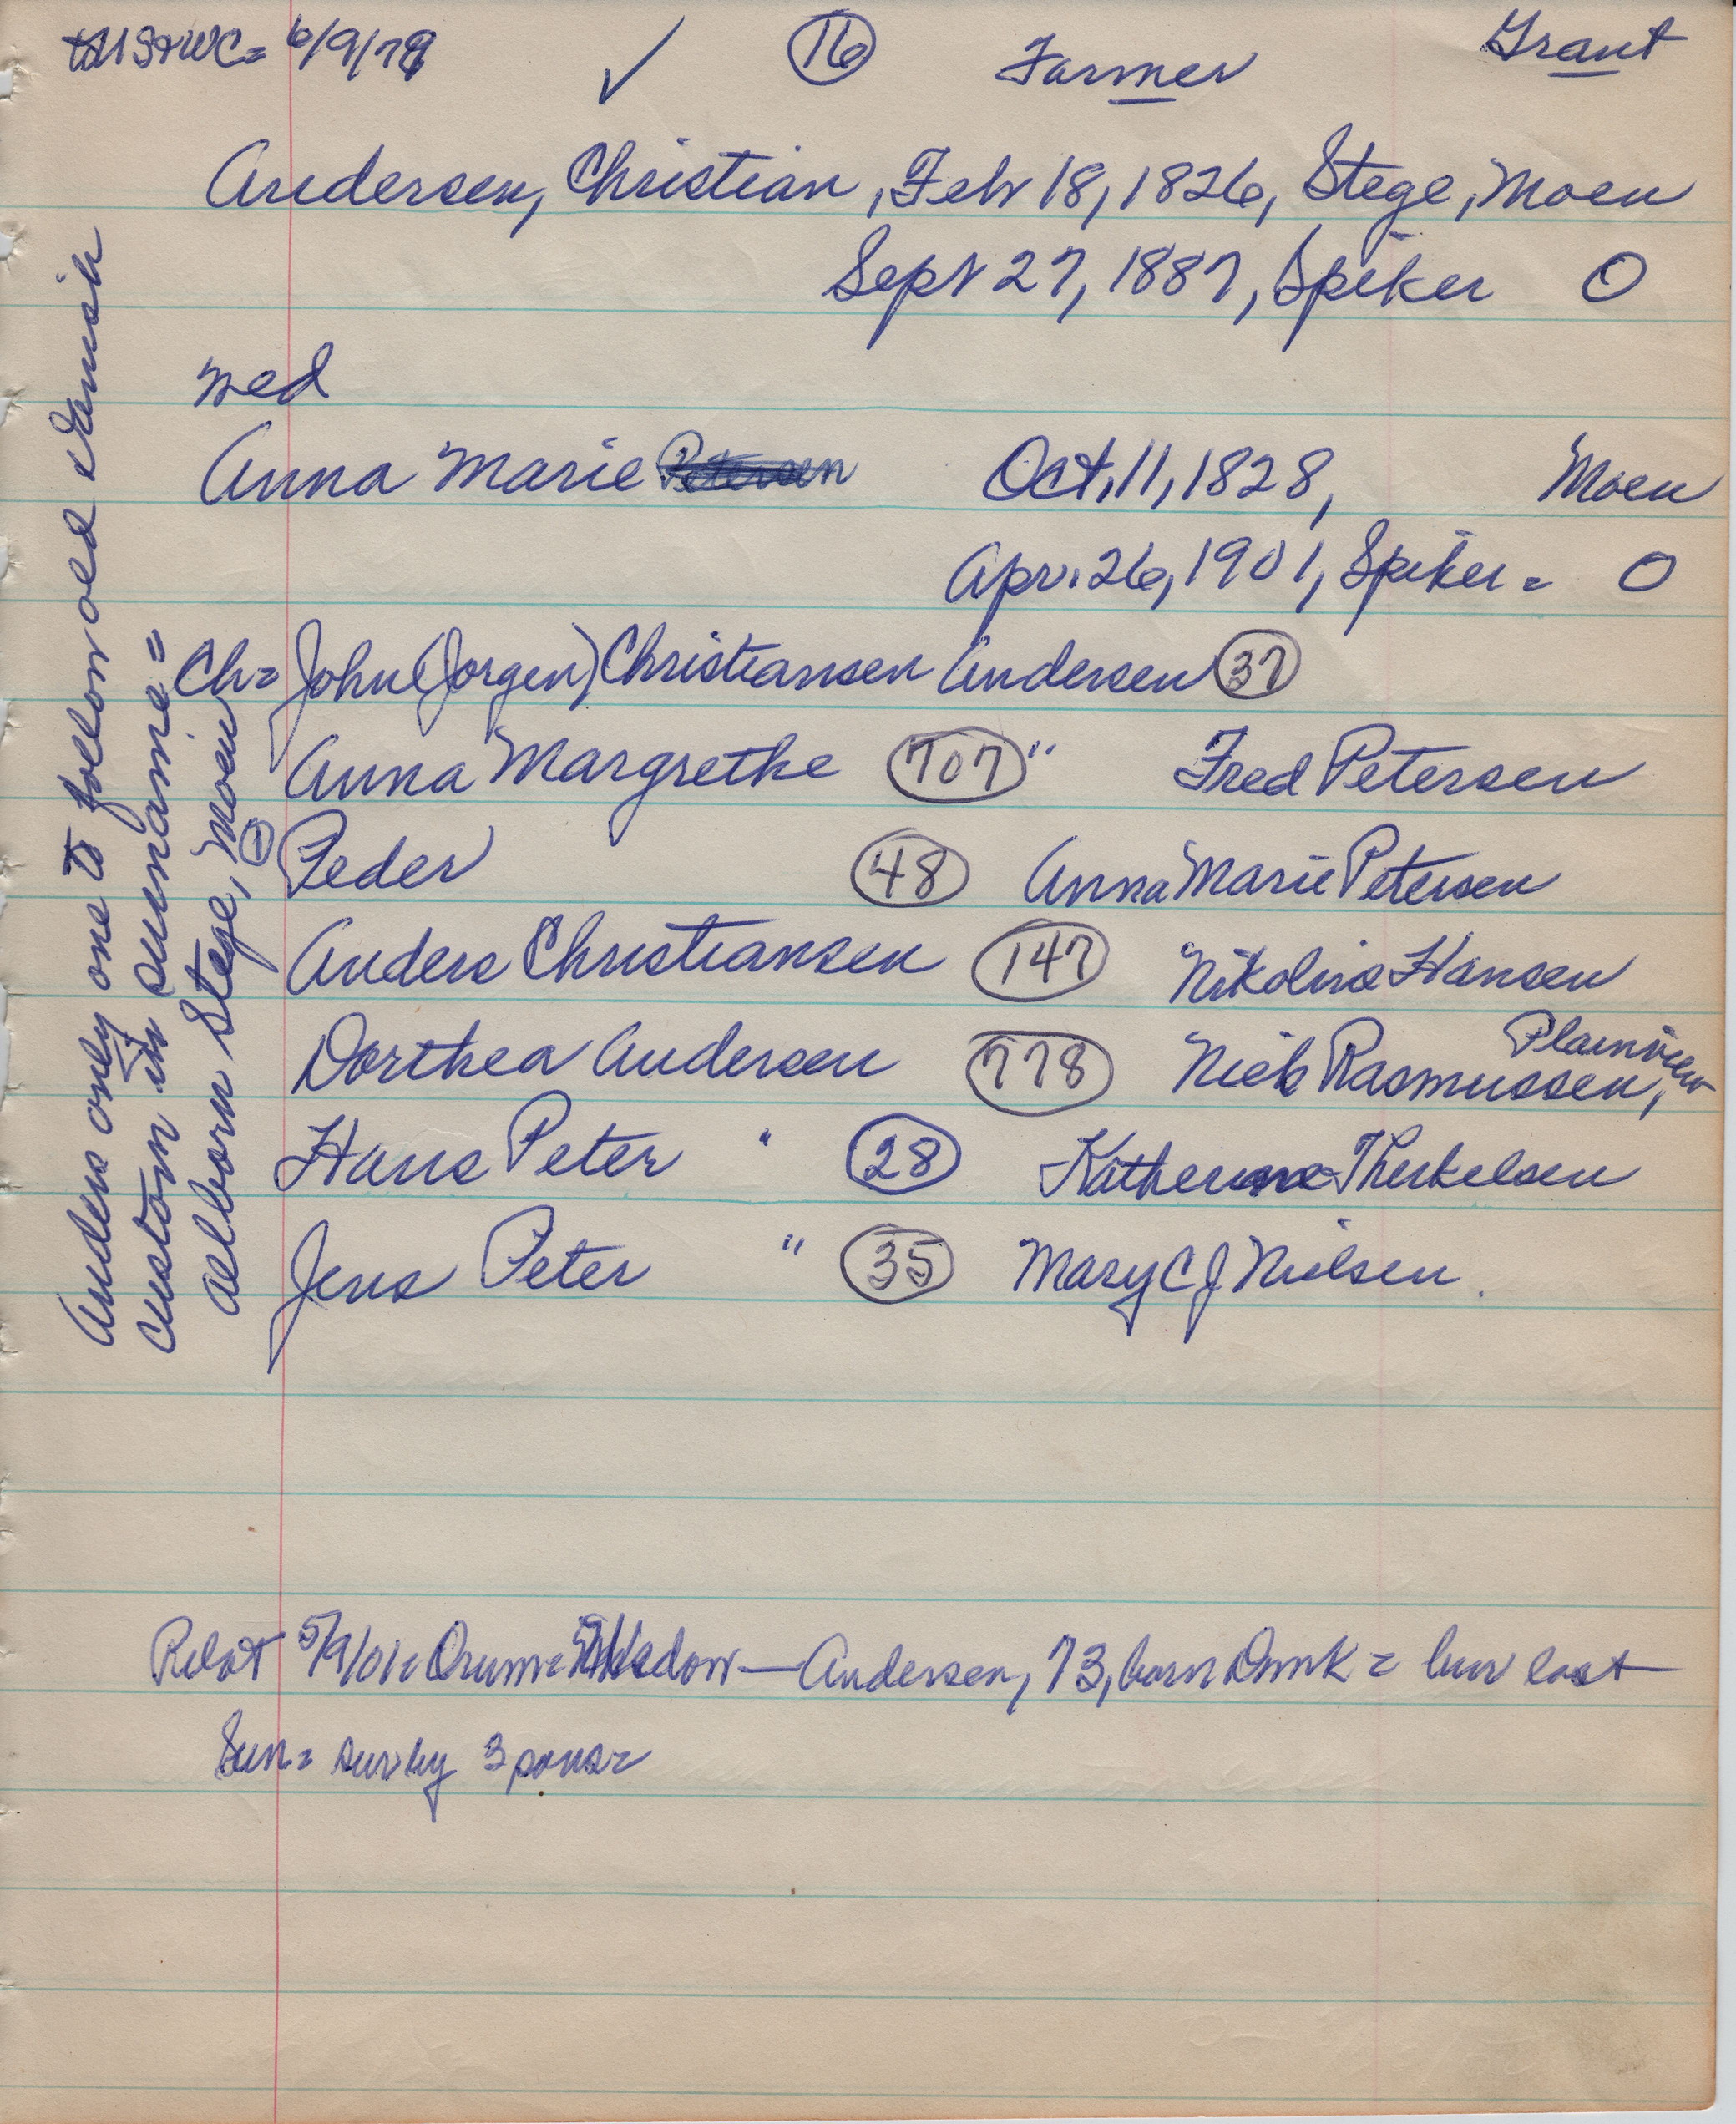 6/9/79 ✓ 16 Farmer Grant
Andersen, Christian, Feb 18, 1826, Stege, Moen
Sept 27, 1887, Spiker O
wed
Anna Marie Petersen Oct. 11, 1828, Moen
Apr. 26, 1901, Spiker = O
Ch = John (Jorgen) Christiansen Andersen 37
Anna Margrethe 707 " Fred Petersen
Peder 48 Anna Marie Petersen
Anders Christiansen 147 Nikoline Hansen
Dorthea Andersen 778 Niels Rasmussen, Plainview
Hans Peter " 28 Katherine Therkelsen
Jens Peter " 35 Mary C J Nielsen.
Anders only one to follow old Danish
custom in surname =
all born Stege, Moen
5/9/01 = Orum = Widow — Andersen, 73, born Dmk = bur last
Sun = sur by 3 sons =